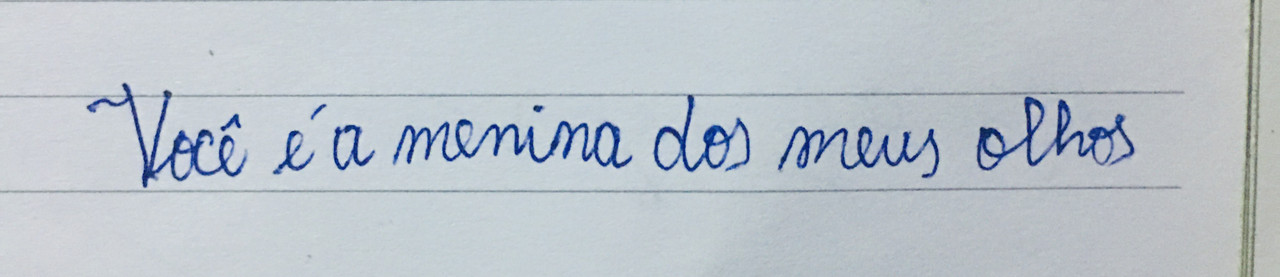 Você é a menina dos meus olhos